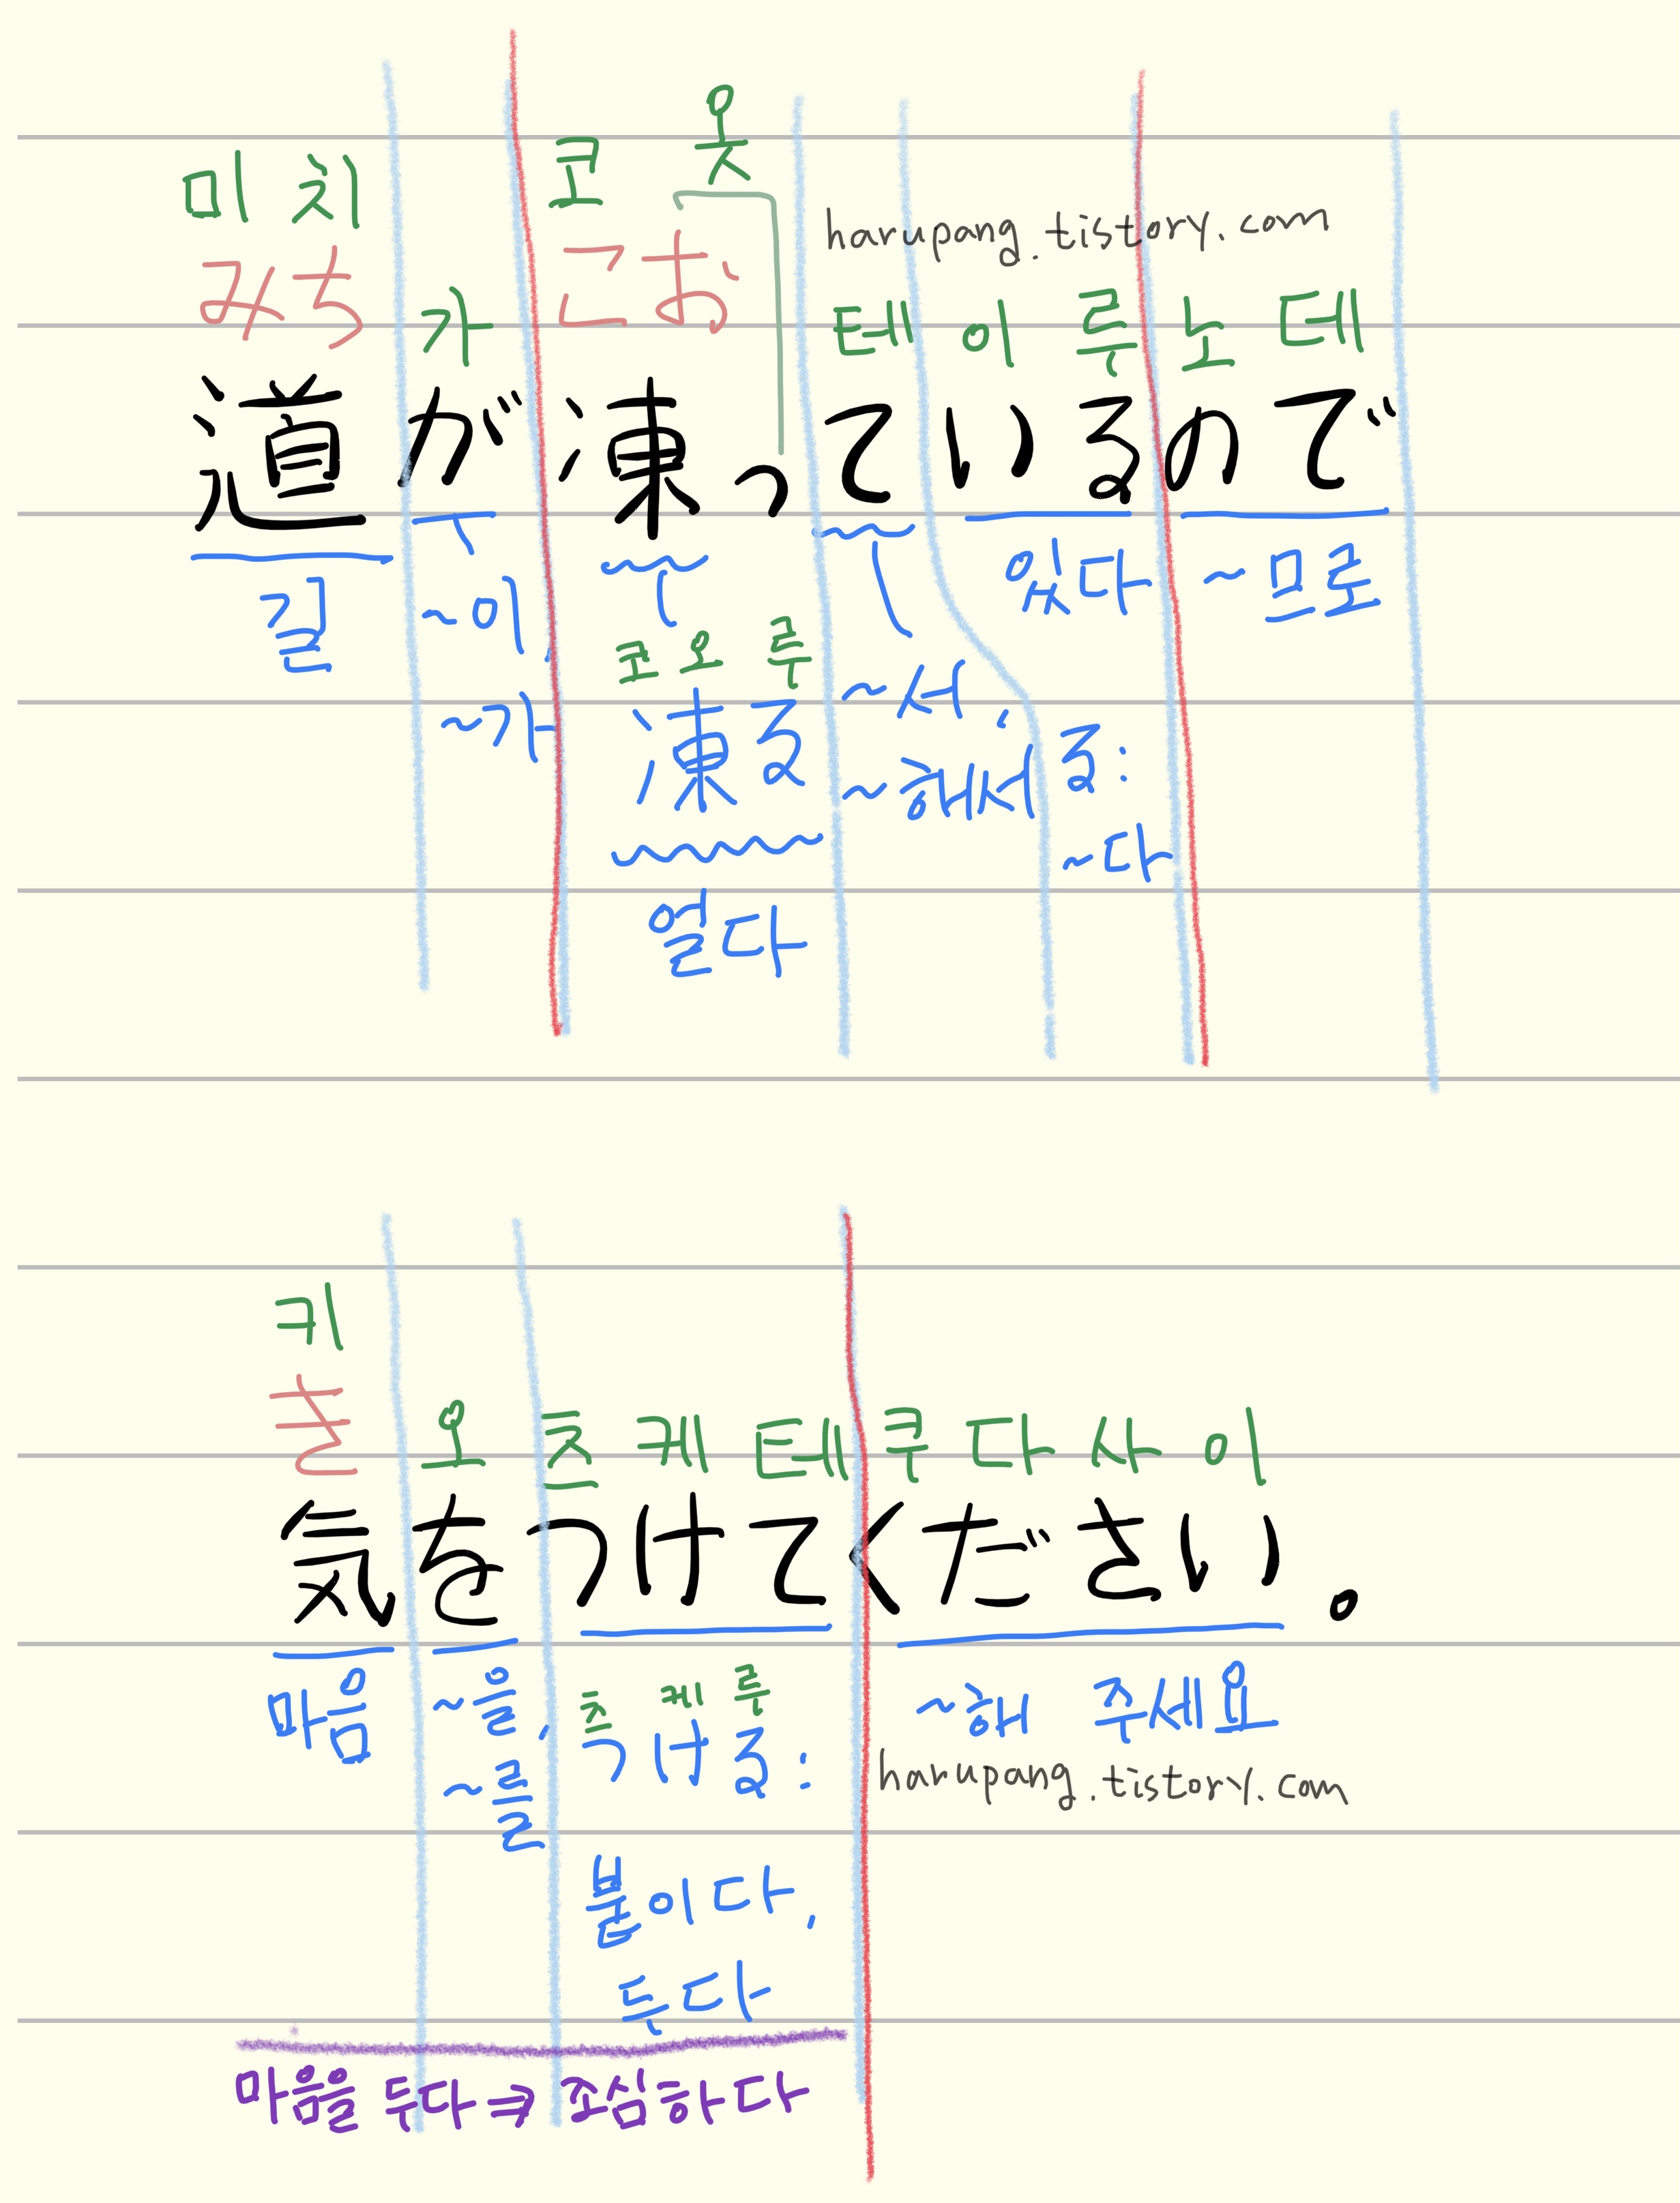 코 옷
미치
みち こお
harupang.tistory.com
가 테이루노데
道が凍っているので
길 ~이, 있다 ~므로
코오루
~가 凍る ~서, る:
~해서
~다
얼다
키
き
오츠케테쿠다사이
気をつけてください。
마음 ~을, 츠케루 ~해 주세요
~를 つける: harupang.tistory.com
붙이다,
두다
마음을 두다 ⇒ 조심하다